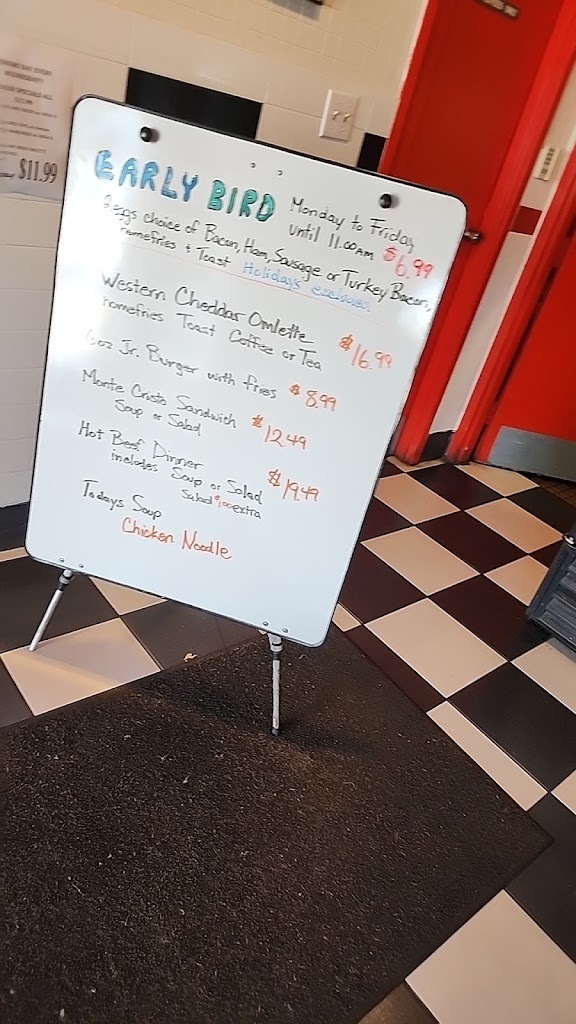 EARLY BIRD Monday to Friday
until 11.00AM $6.99
eggs choice of Bacon, Ham, Sausage or Turkey Bacon,
Homefries + Toast Holidays excluded
Western Cheddar Omlette
homefries Toast Coffee or Tea $16.99
6oz Jr. Burger with fries $8.99
Monte Cristo Sandwich
Soup or Salad $12.49
Hot Beef Dinner
includes Soup or Salad $19.49
Salad extra
Todays Soup
Chicken Noodle
$11.99